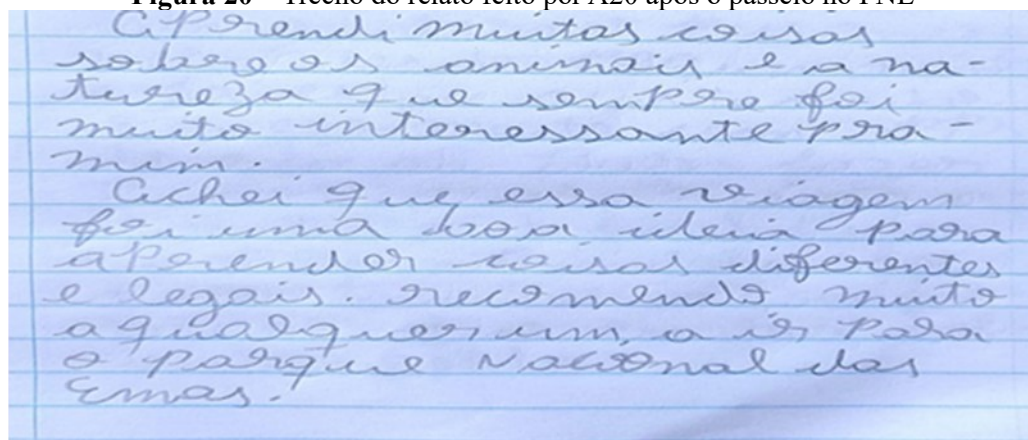 Figura 20 – Trecho do relato feito por A20 após o passeio no PNE
Aprendi muitas coisas
sobre os animais e a na-
tureza que sempre foi
muito interessante pra-
mim.
Achei que essa viagem
foi uma boa ideia para
aprender coisas diferentes
e legais. recomendo muito
a qualquer um, a ir para
o parque Nacional das
Emas.